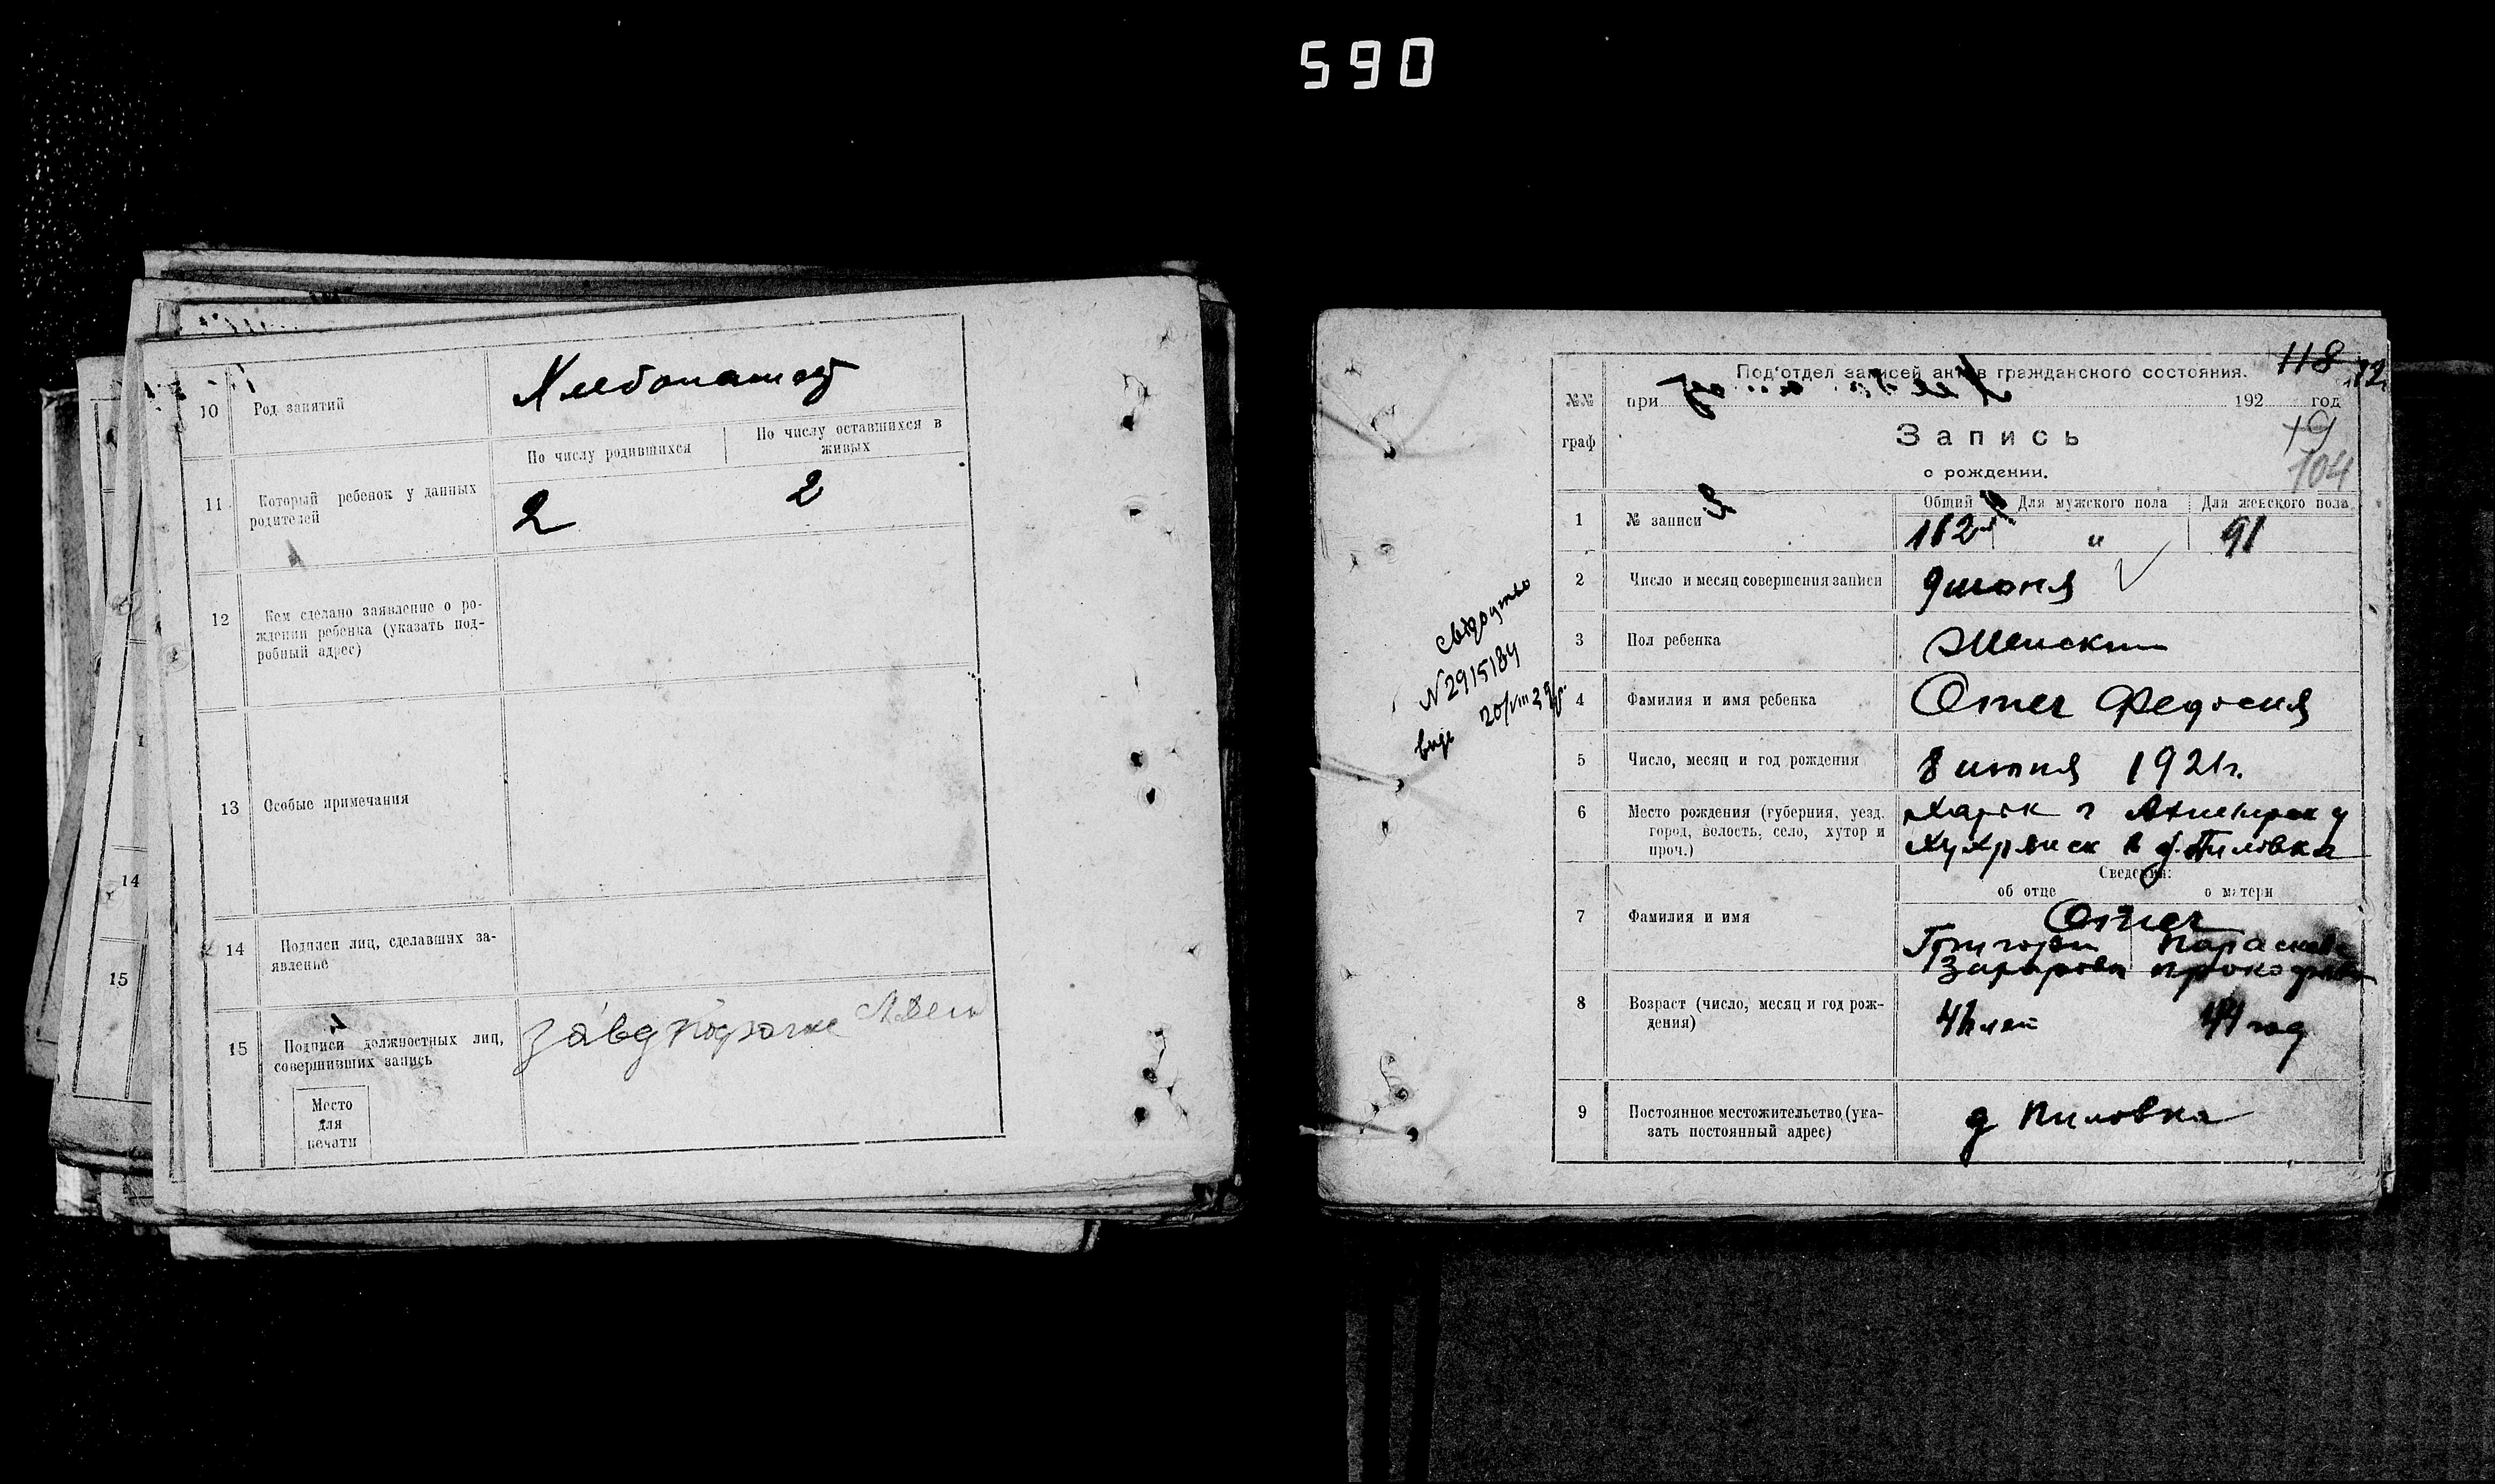 590
10 Род занятий
Хлебопашец
11 Который ребенок у данных
родителей
По числу родившихся
По числу оставшихся в
живых
2 2
12 Кем сделано заявление о ро-
ждении ребенка (указать под-
робный адрес)
13 Особые примечания
14 Подписи лиц, сделавших за-
явление
15 Подписи должностных лиц,
совершивших запись
Место
для
печати
1
14
15
118
Под'отдел записей актов гражданского состояния.
№№
граф
при 192 год
19
104
Запись
о рождении.
1 № записи
Общий Для мужского пола Для женского пола
182 " 91
2 Число и месяц совершения записи 9 июня
3 Пол ребенка Женский
4 Фамилия и имя ребенка Отчег Федосия
5 Число, месяц и год рождения 8 июня 1921 г.
6 Место рождения (губерния, уезд,
город, волость, село, хутор и
проч.)
Харьк г Ахтырск у
Хухрянск в д. Пиловка
Сведения:
об отце о матери
7 Фамилия и имя
Григорий Параскев
Захаров Прокофьев
8 Возраст (число, месяц и год рож-
дения)
лет 41 год
9 Постоянное местожительство (ука-
зать постоянный адрес)
д Пиловка
свідоцтво
N 2915184
20/VIII 39 р.